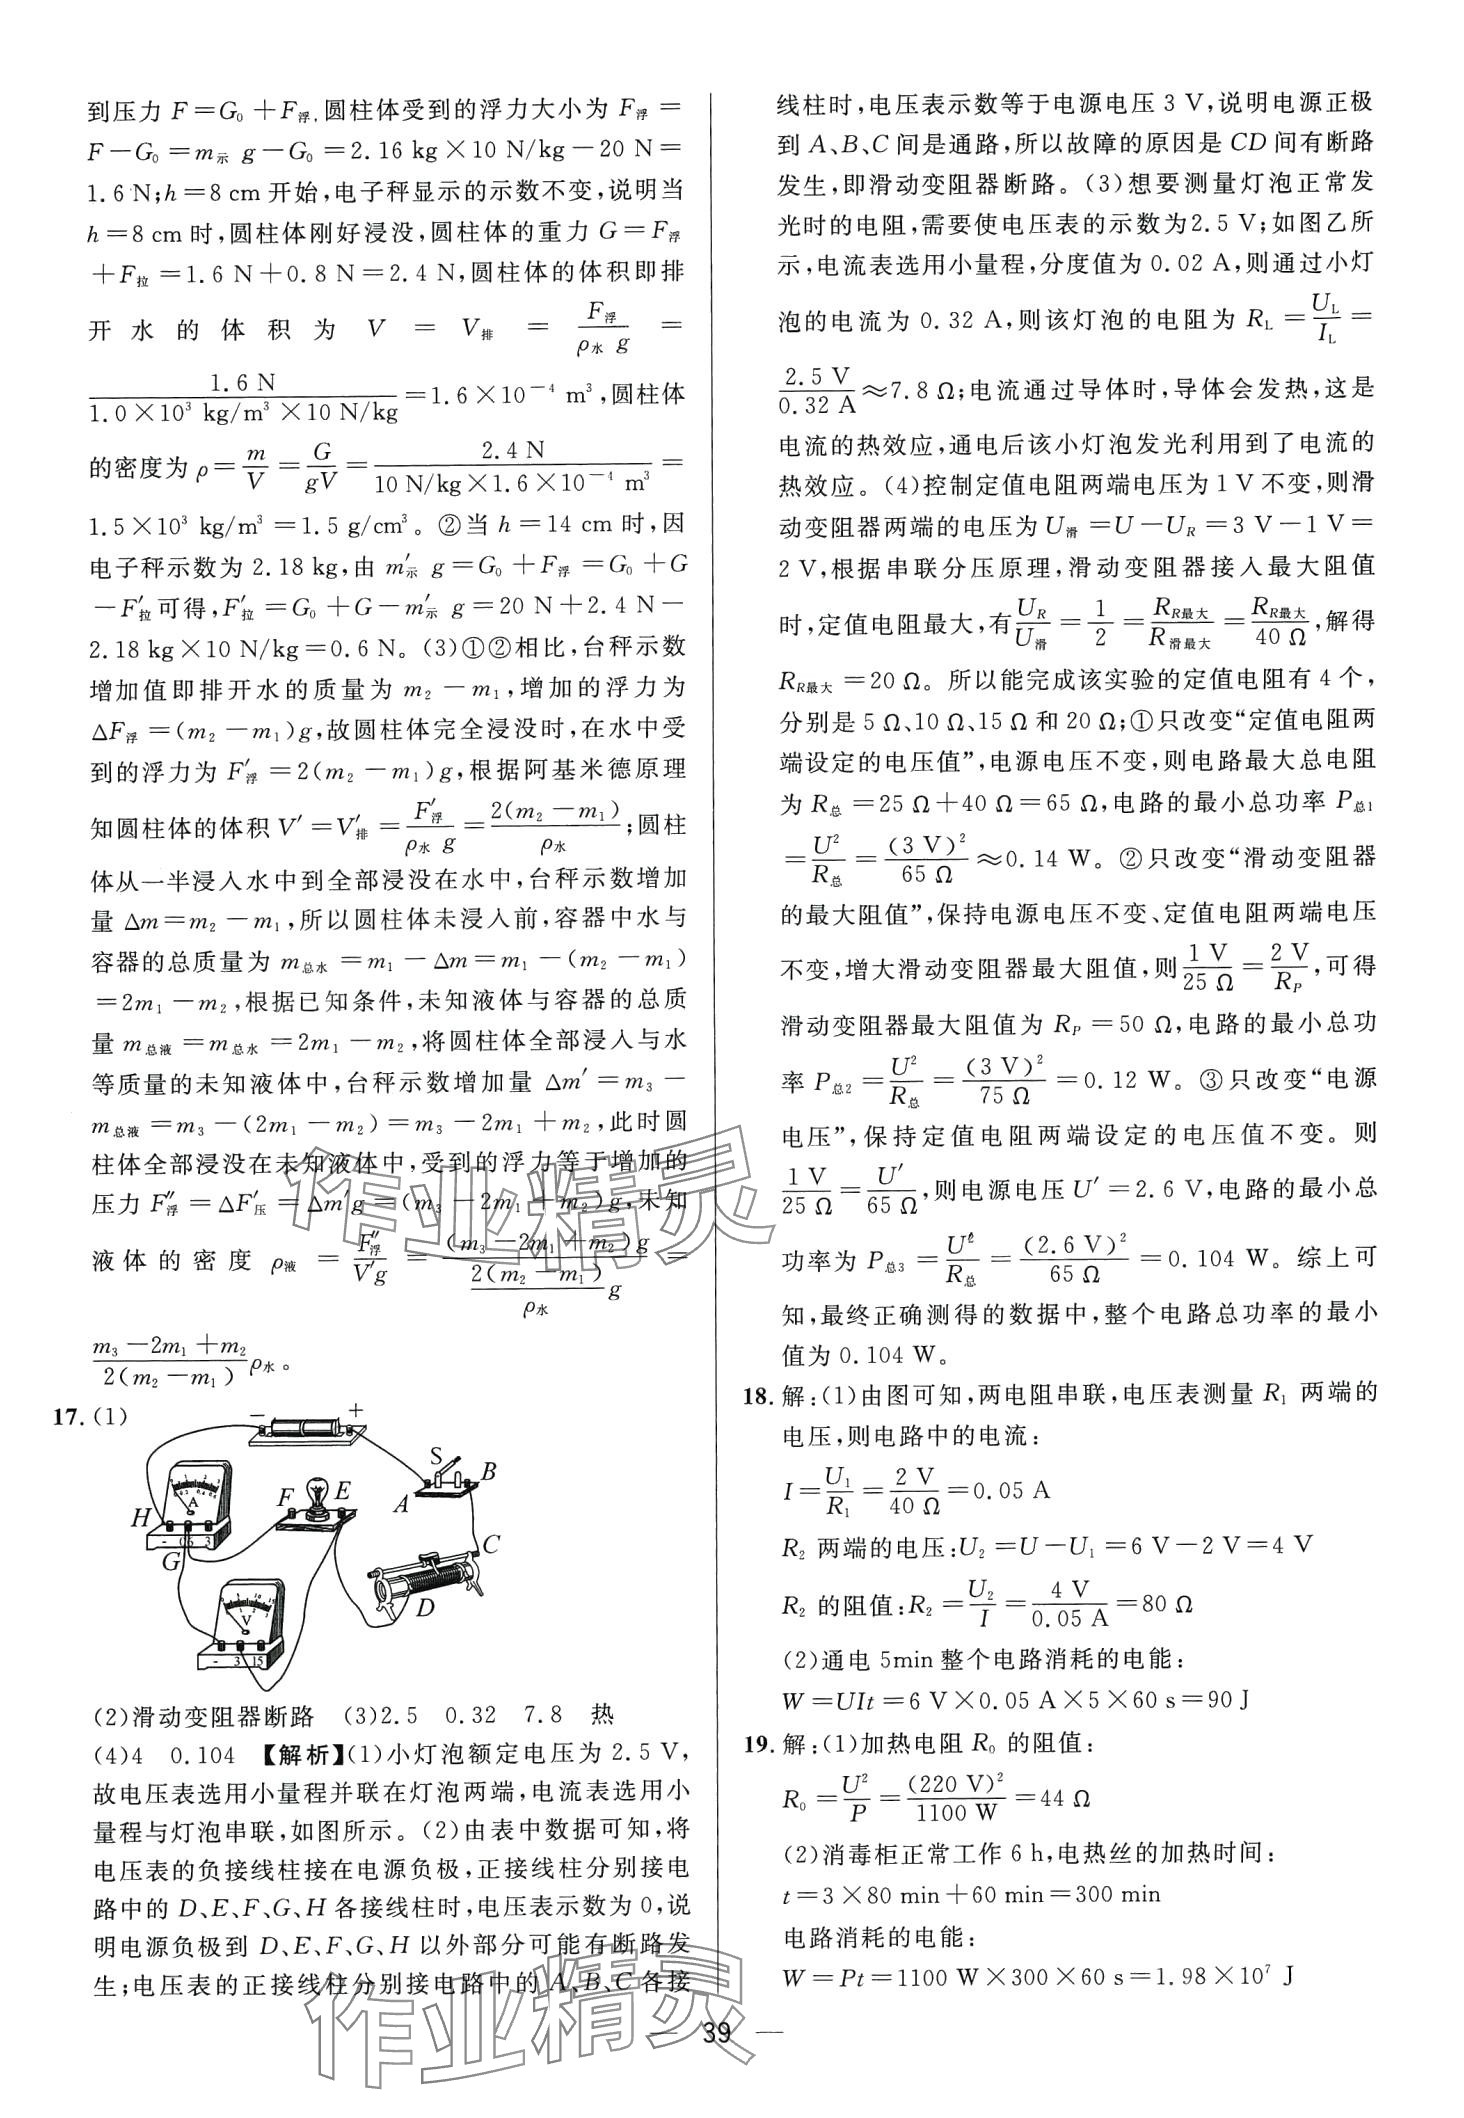 到压力 F=G₀+F浮,圆柱体受到的浮力大小为 F浮=
F-G₀=m示 g-G₀=2.16 kg×10 N/kg-20 N=
1.6 N;h=8 cm开始,电子秤显示的示数不变,说明当
h=8 cm时,圆柱体刚好浸没,圆柱体的重力 G=F浮
+F拉=1.6 N+0.8 N=2.4 N,圆柱体的体积即排
开水的体积为 V = V排 = F浮/(ρ水 g) =
1.6 N/(1.0×10³ kg/m³×10 N/kg)=1.6×10⁻⁴ m³,圆柱体
的密度为 ρ=m/V=G/(gV)=2.4 N/(10 N/kg×1.6×10⁻⁴ m³)=
1.5×10³ kg/m³=1.5 g/cm³。②当 h=14 cm时,因
电子秤示数为 2.18 kg,由 m′示 g=G₀+F浮=G₀+G
-F′拉可得,F′拉=G₀+G-m′示 g=20 N+2.4 N-
2.18 kg×10 N/kg=0.6 N。(3)①②相比,台秤示数
增加值即排开水的质量为 m₂-m₁,增加的浮力为
ΔF浮=(m₂-m₁)g,故圆柱体完全浸没时,在水中受
到的浮力为 F′浮=2(m₂-m₁)g,根据阿基米德原理
知圆柱体的体积 V′=V′排=F′浮/(ρ水 g)=2(m₂-m₁)/ρ水;圆柱
体从一半浸入水中到全部浸没在水中,台秤示数增加
量 Δm=m₂-m₁,所以圆柱体未浸入前,容器中水与
容器的总质量为 m总水=m₁-Δm=m₁-(m₂-m₁)
=2m₁-m₂,根据已知条件,未知液体与容器的总质
量 m总液=m总水=2m₁-m₂,将圆柱体全部浸入与水
等质量的未知液体中,台秤示数增加量 Δm′=m₃-
m总液=m₃-(2m₁-m₂)=m₃-2m₁+m₂,此时圆
柱体全部浸没在未知液体中,受到的浮力等于增加的
压力 F″浮=ΔF′压=Δm′g=(m₃-2m₁+m₂)g,未知
液体的密度 ρ液 = F″浮/(V′g) = (m₃-2m₁+m₂)g/(2(m₂-m₁)/ρ水 g) =
(m₃-2m₁+m₂)/(2(m₂-m₁))ρ水。
17.(1)
- +
S
A B
F E
H
A
- 0.6 3
G
C
D
V
- 3 15
(2)滑动变阻器断路 (3)2.5 0.32 7.8 热
(4)4 0.104 【解析】(1)小灯泡额定电压为 2.5 V,
故电压表选用小量程并联在灯泡两端,电流表选用小
量程与灯泡串联,如图所示。(2)由表中数据可知,将
电压表的负接线柱接在电源负极,正接线柱分别接电
路中的 D、E、F、G、H 各接线柱时,电压表示数为 0,说
明电源负极到 D、E、F、G、H 以外部分可能有断路发
生;电压表的正接线柱分别接电路中的 A、B、C 各接
线柱时,电压表示数等于电源电压 3 V,说明电源正极
到 A、B、C 间是通路,所以故障的原因是 CD 间有断路
发生,即滑动变阻器断路。(3)想要测量灯泡正常发
光时的电阻,需要使电压表的示数为2.5 V;如图乙所
示,电流表选用小量程,分度值为 0.02 A,则通过小灯
泡的电流为 0.32 A,则该灯泡的电阻为 R_L=U_L/I_L=
2.5 V/0.32 A≈7.8 Ω;电流通过导体时,导体会发热,这是
电流的热效应,通电后该小灯泡发光利用到了电流的
热效应。(4)控制定值电阻两端电压为 1 V 不变,则滑
动变阻器两端的电压为 U滑=U-U_R=3 V-1 V=
2 V,根据串联分压原理,滑动变阻器接入最大阻值
时,定值电阻最大,有U_R/U滑=1/2=R_R最大/R滑最大=R_R最大/40 Ω,解得
R_R最大=20 Ω。所以能完成该实验的定值电阻有 4 个,
分别是 5 Ω、10 Ω、15 Ω 和 20 Ω;①只改变“定值电阻两
端设定的电压值”,电源电压不变,则电路最大总电阻
为 R总=25 Ω+40 Ω=65 Ω,电路的最小总功率 P总1
=U²/R总=(3 V)²/65 Ω≈0.14 W。②只改变“滑动变阻器
的最大阻值”,保持电源电压不变、定值电阻两端电压
不变,增大滑动变阻器最大阻值,则1 V/25 Ω=2 V/R_P,可得
滑动变阻器最大阻值为 R_P=50 Ω,电路的最小总功
率 P总2=U²/R总=(3 V)²/75 Ω=0.12 W。③只改变“电源
电压”,保持定值电阻两端设定的电压值不变。则
1 V/25 Ω=U′/65 Ω,则电源电压 U′=2.6 V,电路的最小总
功率为 P总3=U′²/R总=(2.6 V)²/65 Ω=0.104 W。综上可
知,最终正确测得的数据中,整个电路总功率的最小
值为 0.104 W。
18.解:(1)由图可知,两电阻串联,电压表测量 R₁ 两端的
电压,则电路中的电流:
I=U₁/R₁=2 V/40 Ω=0.05 A
R₂ 两端的电压:U₂=U-U₁=6 V-2 V=4 V
R₂ 的阻值:R₂=U₂/I=4 V/0.05 A=80 Ω
(2)通电 5min整个电路消耗的电能:
W=UIt=6 V×0.05 A×5×60 s=90 J
19.解:(1)加热电阻 R₀ 的阻值:
R₀=U²/P=(220 V)²/1100 W=44 Ω
(2)消毒柜正常工作 6 h,电热丝的加热时间:
t=3×80 min+60 min=300 min
电路消耗的电能:
W=Pt=1100 W×300×60 s=1.98×10⁷ J
作业精灵
作业精灵
— 39 —